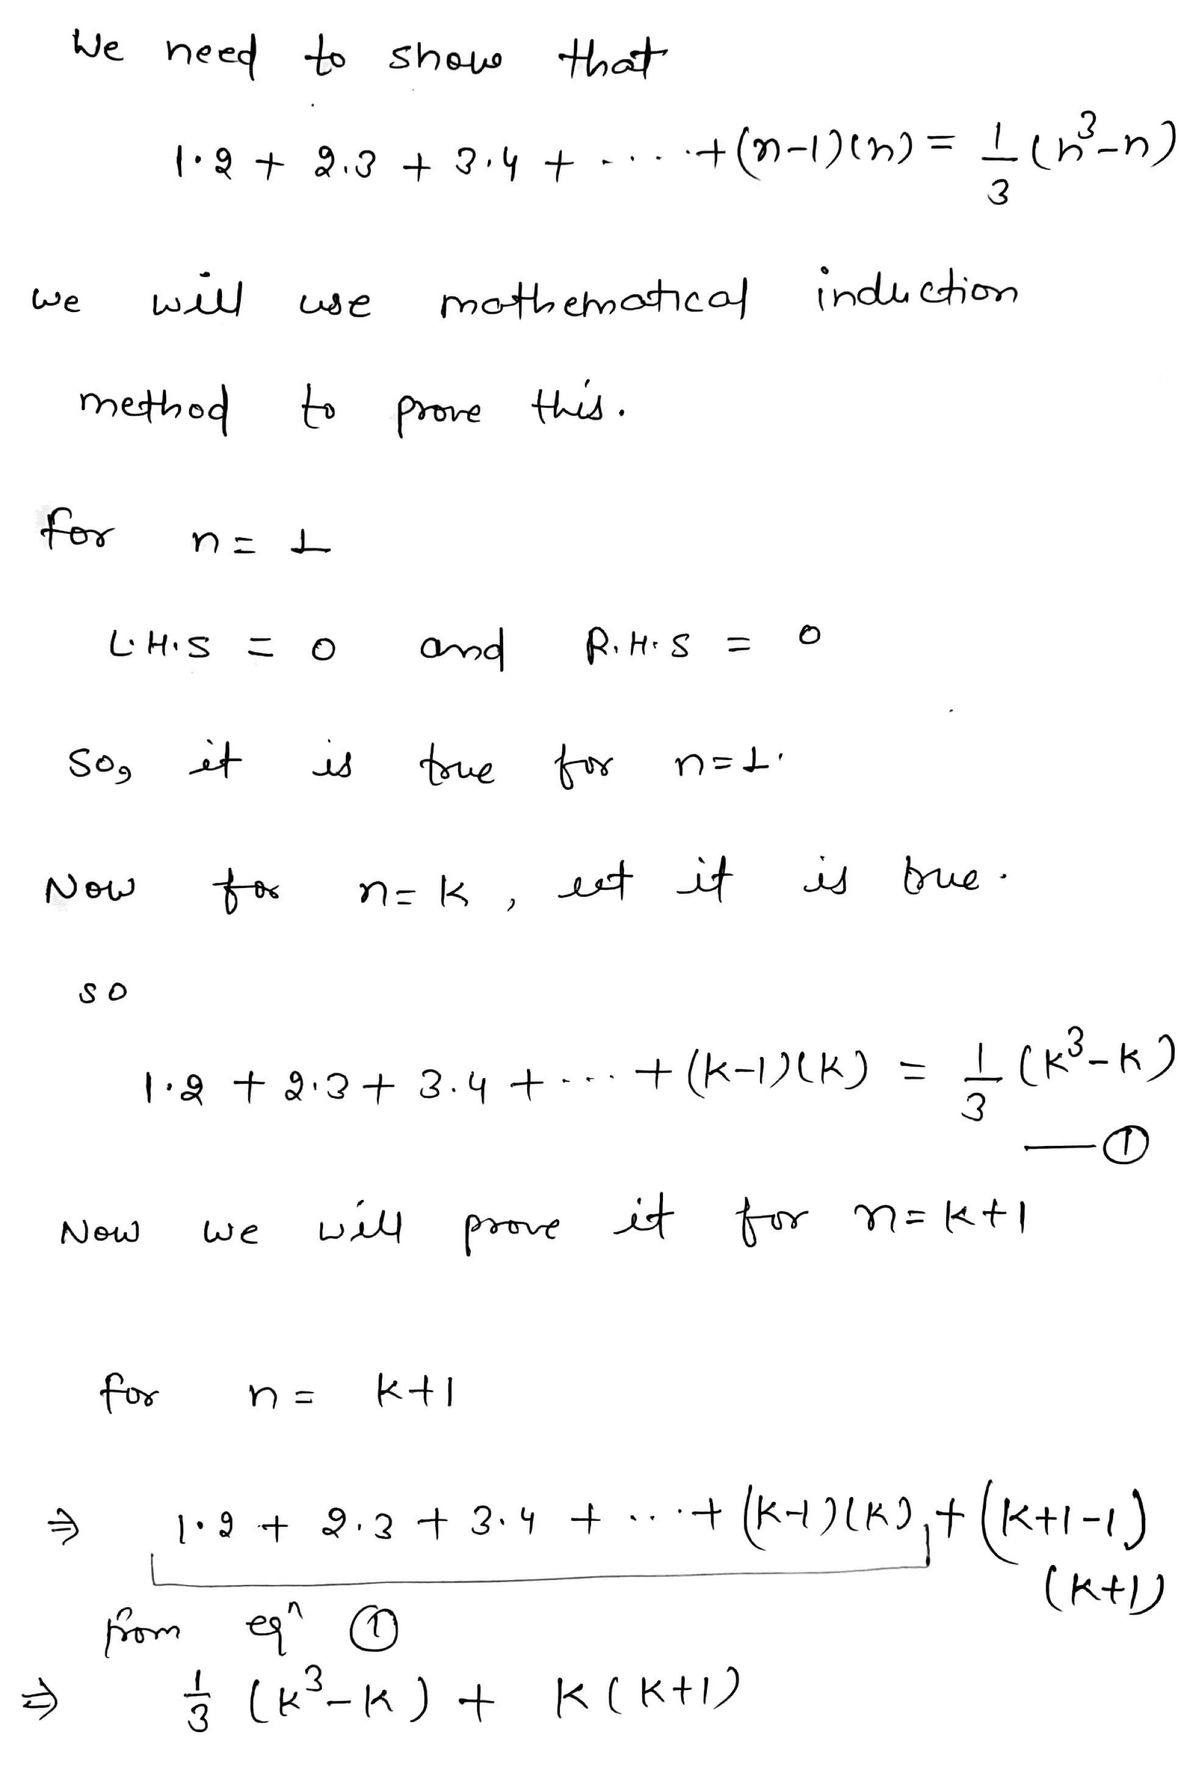 We need to show that
1·2 + 2.3 + 3.4 + ..... + (n-1)(n) = 1/3 (n³-n)
we will use mathematical induction
method to prove this.
for n = 1
L.H.S = 0 and R.H.S = 0
So, it is true for n=1.
Now for n=k, let it is true.
so
1·2 + 2·3 + 3.4 + .... + (k-1)(k) = 1/3 (k³-k)
—①
Now we will prove it for n=k+1
for n = k+1
⇒ 1·2 + 2.3 + 3.4 + ... + (k-1)(k) + (k+1-1)
(k+1)
from eqⁿ ①
⇒ 1/3 (k³-k) + k(k+1)